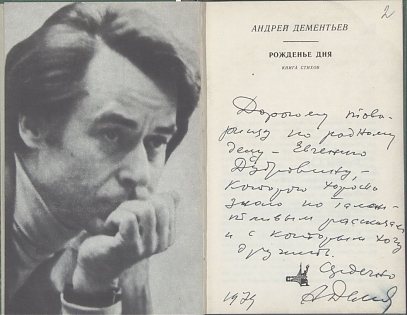 2
АНДРЕЙ ДЕМЕНТЬЕВ
РОЖДЕНЬЕ ДНЯ
КНИГА СТИХОВ
Дорогому това-
рищу по родному
делу – Евгению
Дубровину, –
которого хорошо
знаю по талан-
тливым рассказам
и с которым хочу
дружить.
Сердечно
1974